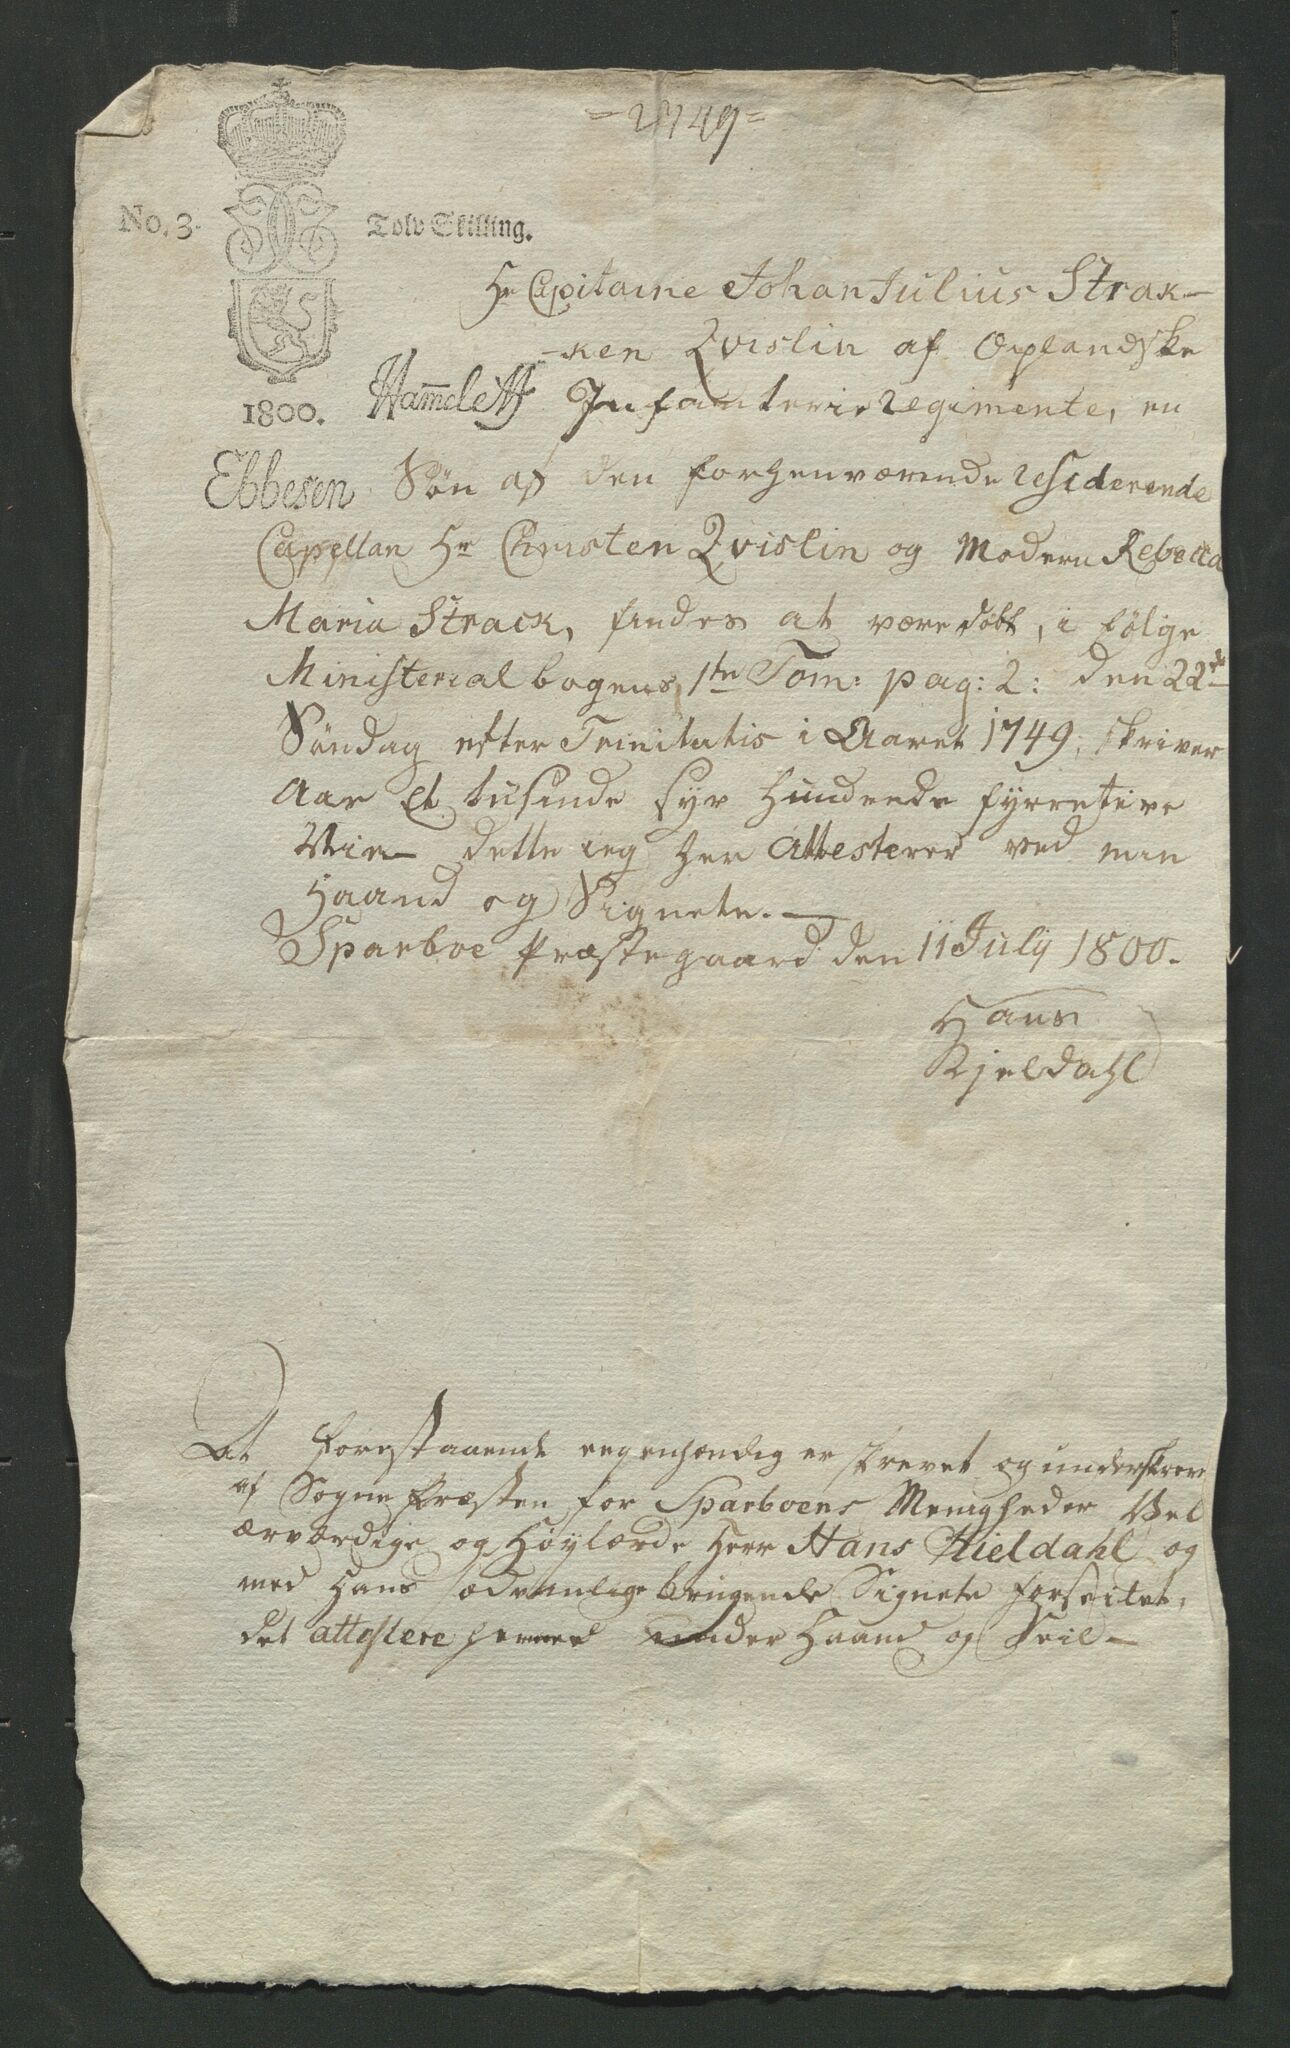 =1749=
No. 3.
Tolv Skilling.
1800.
Hammeleff
Ebbesen
Hr Capitaine Johan Julius Strak-
-ken Qvislin af Oplandske
Infanterie regimente, en
Søn af den forhenværende residerende
Capellan Hr Christen Qvislin og Modern Rebecca
Maria Strack, findes at være døbt, i følge
Ministerial bogens 1ste Tom: pag: 2: den 22de
Søndag efter Trinitatis i Aaret 1749, skriver
Aar et tusinde syv hundrede fyrretive
Nie - dette ieg her Attesterer ved min
Haand og Signete. -
Sparboe Præstegaard den 11 July 1800.
Hans
Kjeldahl
At forestaaende eegenhændig er skrevet og underskrev
af Sogne Præsten for Sparboens Menigheder Vel
ærværdige og Høylærde Herr Hans Kieldahl og
med Hans ædvanlige brugende Signete forseilet,
det attestere herved under Haand og Seil -